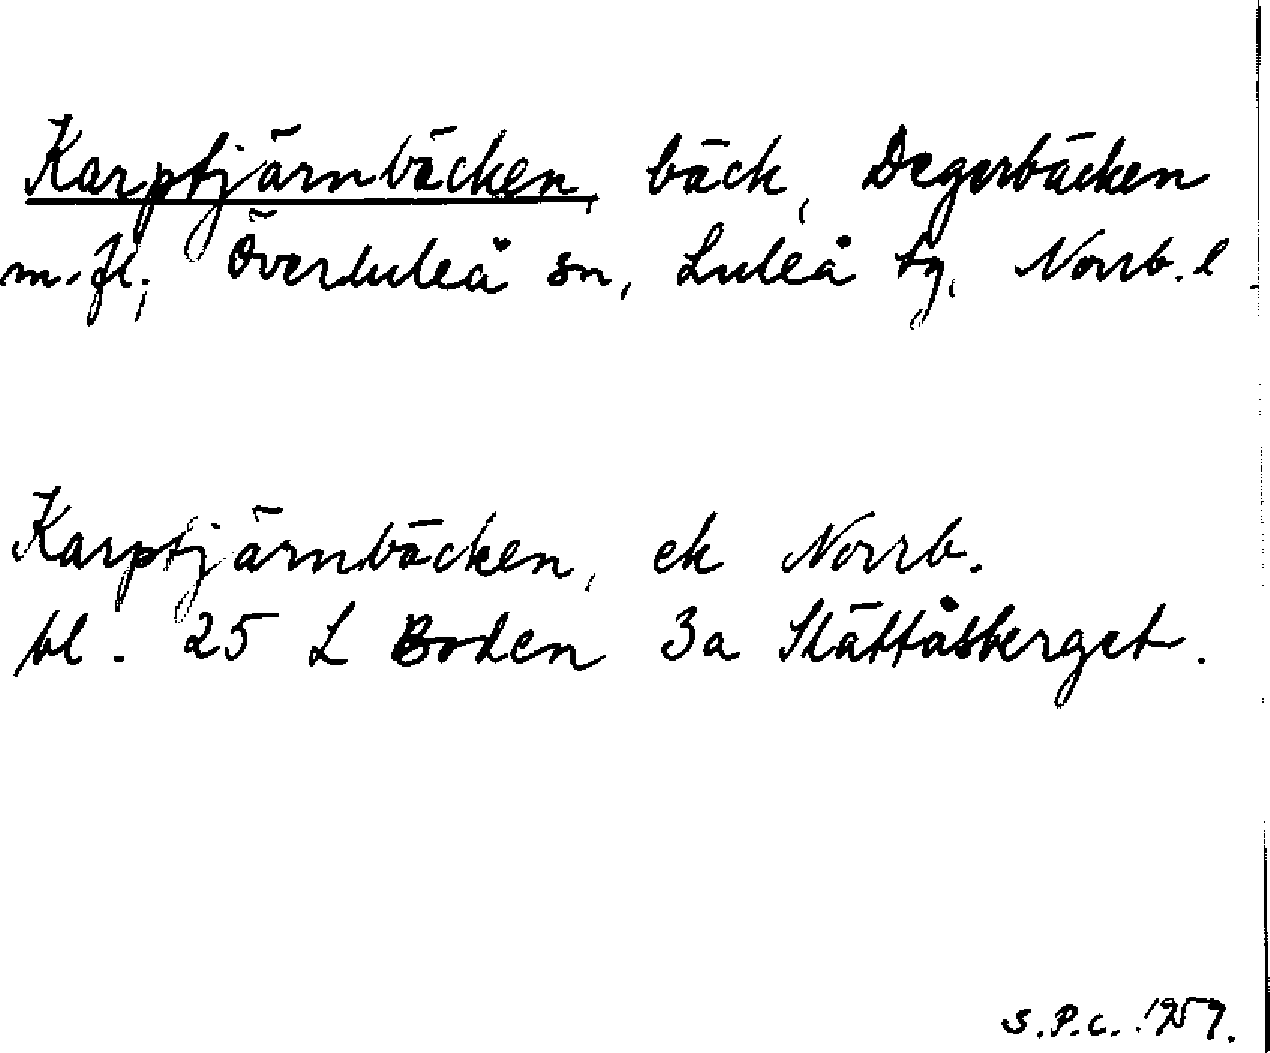 Karptjärnbäcken, bäck, Degerbäcken
m.fl., Överluleå sn, Luleå tg, Norrb. l.
Karptjärnbäcken, ek Norrb.
bl. 25 L Boden 3a Slättåsberget.
S.P.C. 1959.